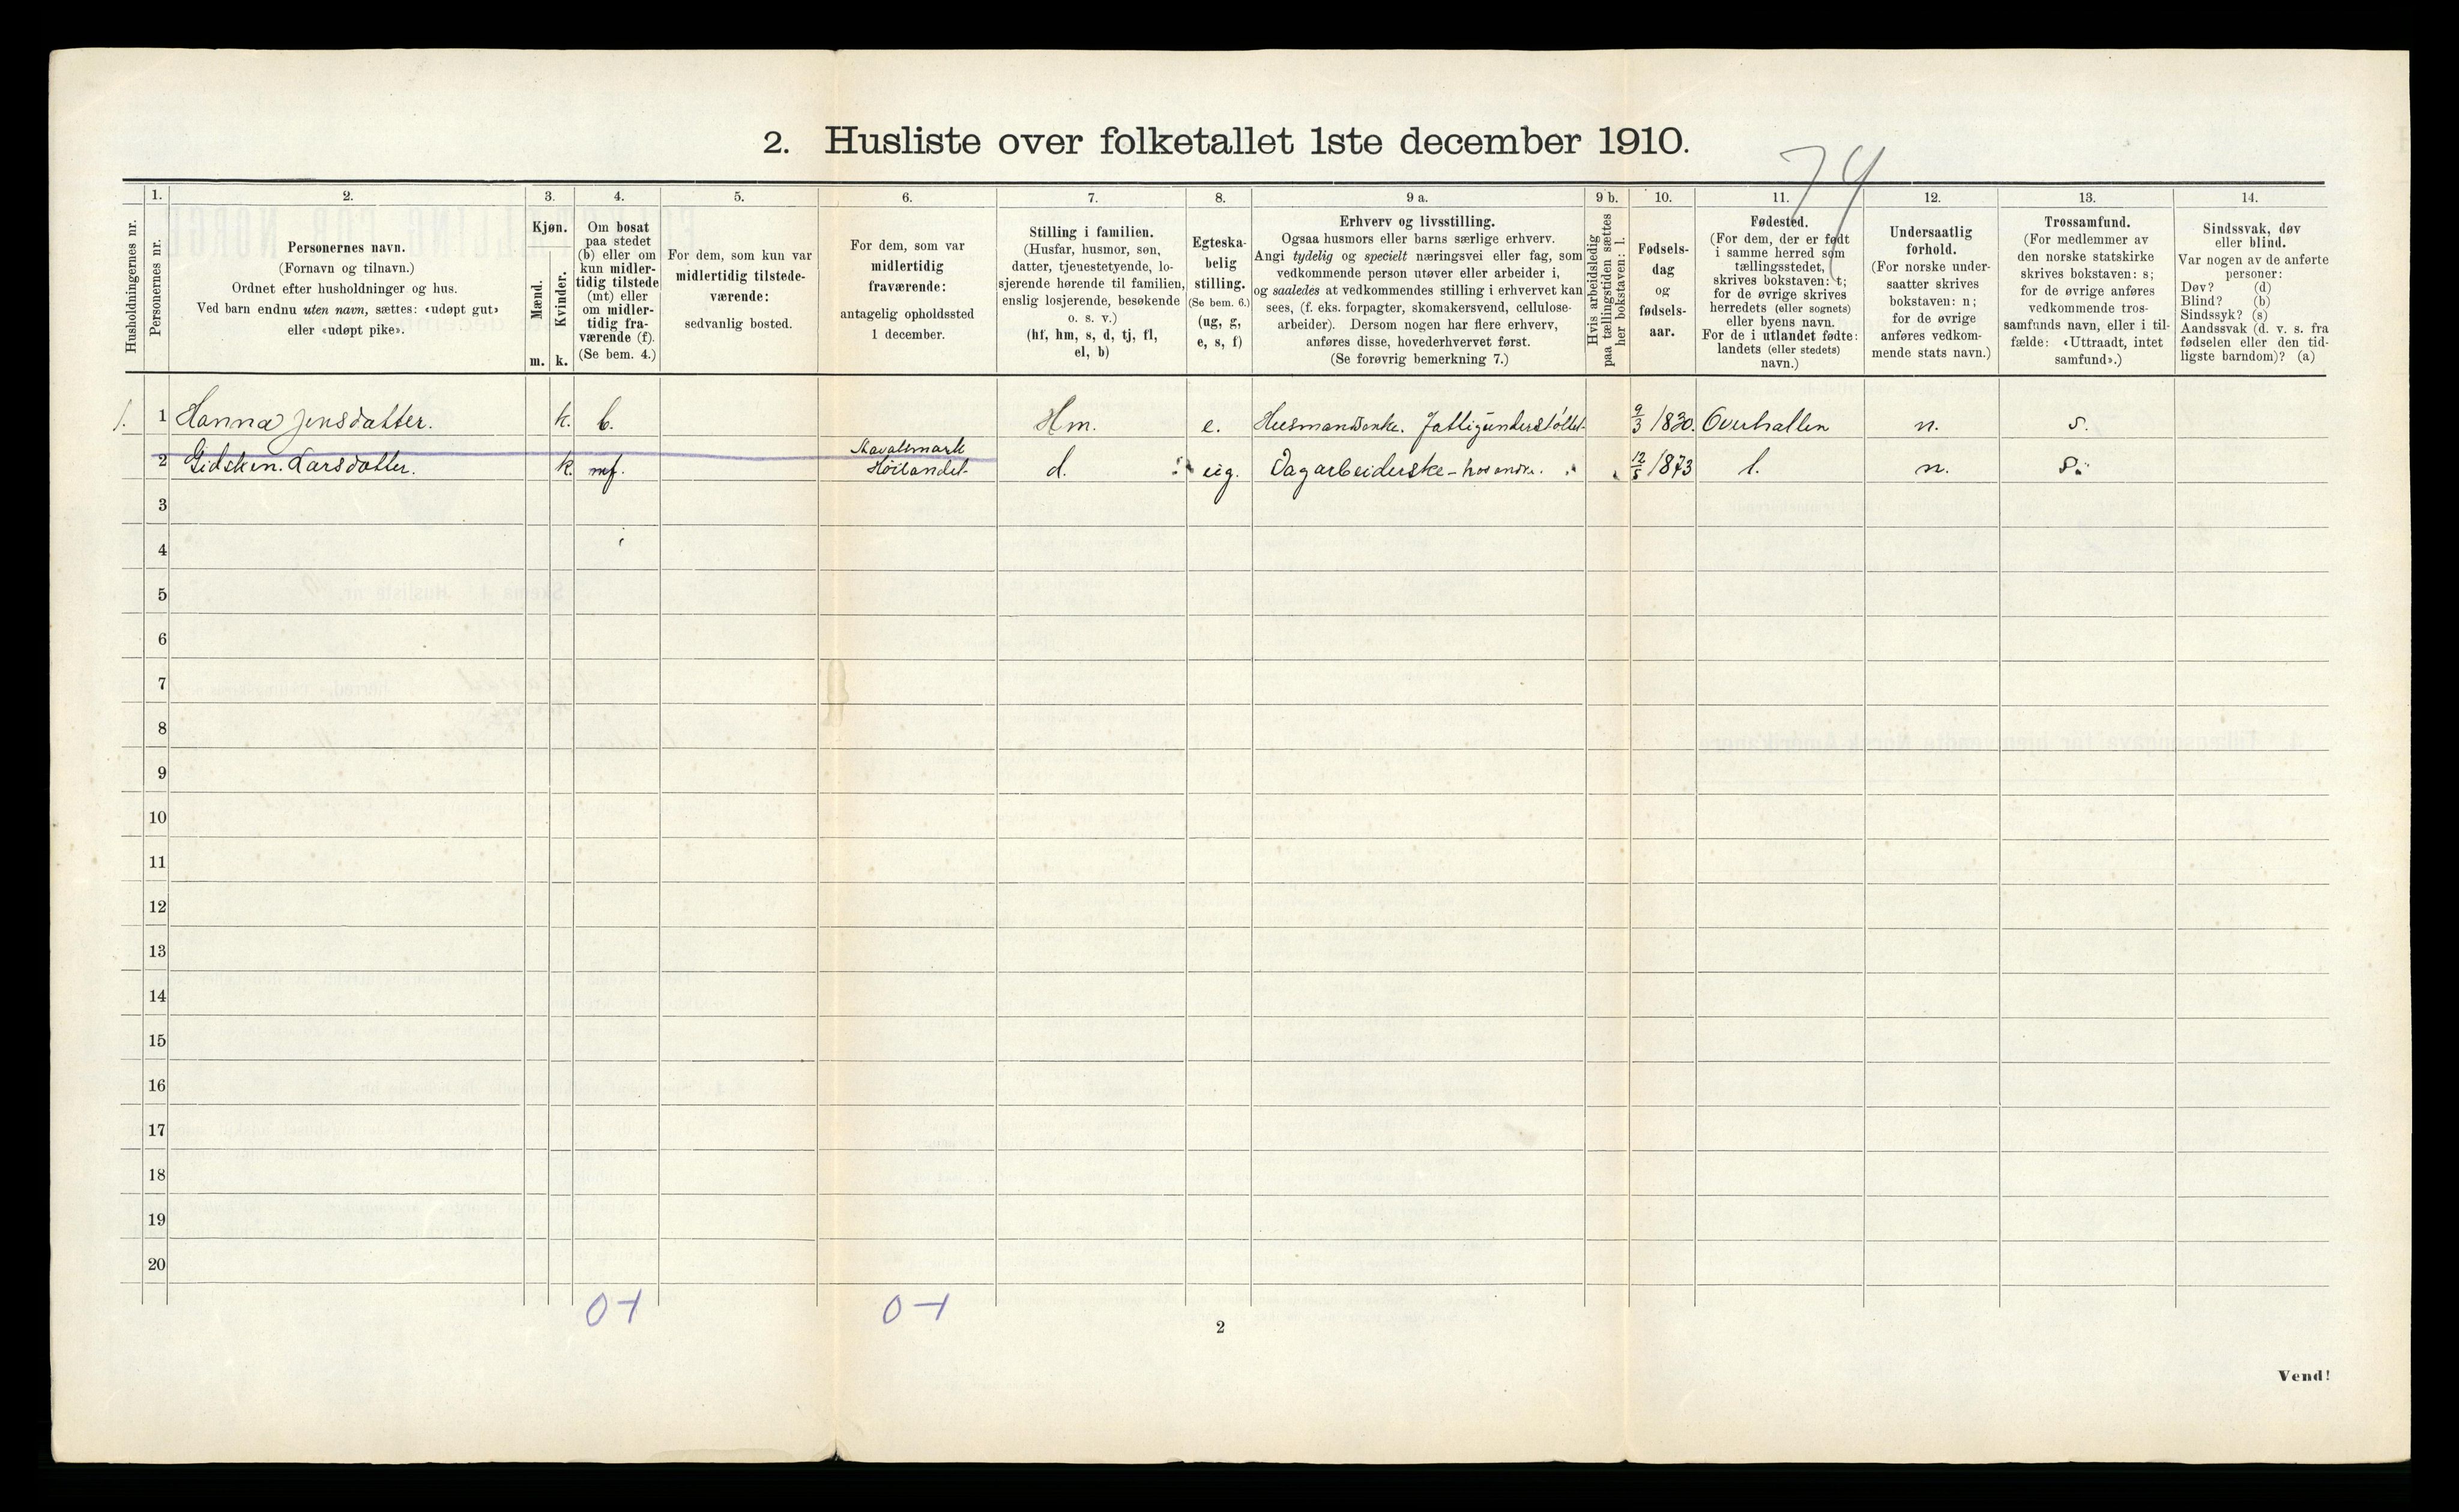 2. Husliste over folketallet 1ste december 1910.
74
Husholdningernes nr.
1.
Personernes nr.
2.
Personernes navn.
(Fornavn og tilnavn.)
Ordnet efter husholdninger og hus.
Ved barn endnu uten navn, sættes: «udøpt gut»
eller «udøpt pike».
3.
Kjøn.
Mænd.
m.
Kvinder.
k.
4.
Om bosat
paa stedet
(b) eller om
kun midler-
tidig tilstede
(mt) eller
om midler-
tidig fra-
værende (f).
(Se bem. 4.)
5.
For dem, som kun var
midlertidig tilstede-
værende:
sedvanlig bosted.
6.
For dem, som var
midlertidig
fraværende:
antagelig opholdssted
1 december.
7.
Stilling i familien.
(Husfar, husmor, søn,
datter, tjenestetyende, lo-
sjerende hørende til familien,
enslig losjerende, besøkende
o. s. v.)
(hf, hm, s, d, tj, fl,
el, b)
8.
Egteska-
belig
stilling.
(Se bem. 6.)
(ug, g,
e, s, f)
9 a.
Erhverv og livsstilling.
Ogsaa husmors eller barns særlige erhverv.
Angi tydelig og specielt næringsvei eller fag, som
vedkommende person utøver eller arbeider i,
og saaledes at vedkommendes stilling i erhvervet kan
sees, (f. eks. forpagter, skomakersvend, cellulose-
arbeider). Dersom nogen har flere erhverv,
anføres disse, hovederhvervet først.
(Se forøvrig bemerkning 7.)
9 b.
Hvis arbeidsledig
paa tællingstiden sættes
her bokstaven: l.
10.
Fødsels-
dag
og
fødsels-
aar.
11.
Fødested.
(For dem, der er født
i samme herred som
tællingsstedet,
skrives bokstaven: t;
for de øvrige skrives
herredets (eller sognets)
eller byens navn.
For de i utlandet fødte:
landets (eller stedets)
navn.)
12.
Undersaatlig
forhold.
(For norske under-
saatter skrives
bokstaven: n;
for de øvrige
anføres vedkom-
mende stats navn.)
13.
Trossamfund.
(For medlemmer av
den norske statskirke
skrives bokstaven: s;
for de øvrige anføres
vedkommende tros-
samfunds navn, eller i til-
fælde: «Uttraadt, intet
samfund».)
14.
Sindssvak, døv
eller blind.
Var nogen av de anførte
personer:
Døv? (d)
Blind? (b)
Sindssyk? (s)
Aandssvak (d. v. s. fra
fødselen eller den tid-
ligste barndom)? (a)
1. 1 Hanna Jensdatter. k. b. Hm. e. Husmandsenke. Fattigunderstøttet. 9/3 1830. Overhallen n. s.
2 Gidsken Larsdatter. k. mf. Høilandet d. Dagarbeiderske - hos andre. 12/5 1873 t. n. s.
3
4
5
6
7
8
9
10
11
12
13
14
15
16
17
18
19
20
0-1 0-1
2
Vend!